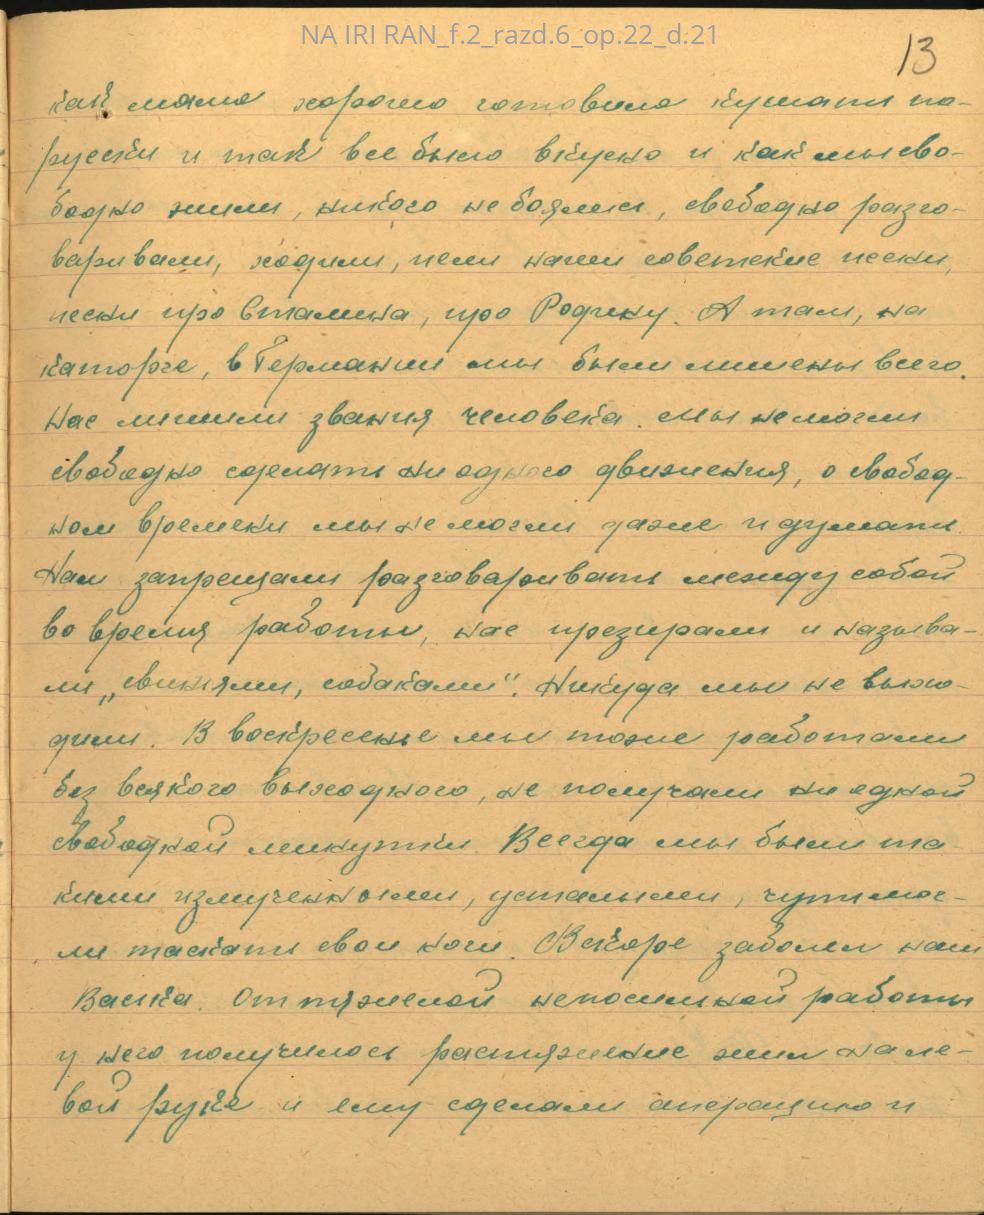 NA IRI RAN_f.2_razd.6_op.22_d.21
13
как мама хорошо готовила кушать по-
русски и так все было вкусно и как мы сво-
бодно жили, никого не боялись, свободно разго-
варивали, ходили, пели наши советские песни,
песни про Сталина, про Родину. А там, на
каторге, в Германии мы были лишены всего.
Нас лишили звания человека. Мы не могли
свободно сделать ни одного движения, о свобод-
ном времени мы не могли даже и думать.
Нам запрещали разговаривать между собой
во время работы, нас презирали и называ-
ли „свиньями, собаками". Никуда мы не выхо-
дили. В воскресенье мы тоже работали
без всякого выходного, не получали ни одной
свободной минутки. Всегда мы были та
кими измученными, усталыми, чуть мог-
ли таскать свои ноги. Вскоре заболел наш
Васька. От тяжелой непосильной работы
у него получилось растяжение жил на ле-
вой руке и ему сделали операцию и